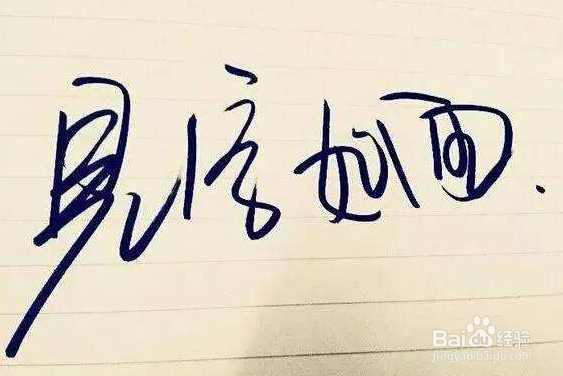 見信如面.
Baidu经验
jingyan.baidu.com